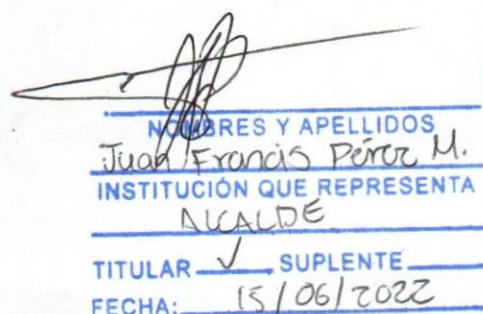 NOMBRES Y APELLIDOS
Juan Francis Pérez M.
INSTITUCIÓN QUE REPRESENTA
ALCALDE
TITULAR ✓ SUPLENTE
FECHA: 15/06/2022